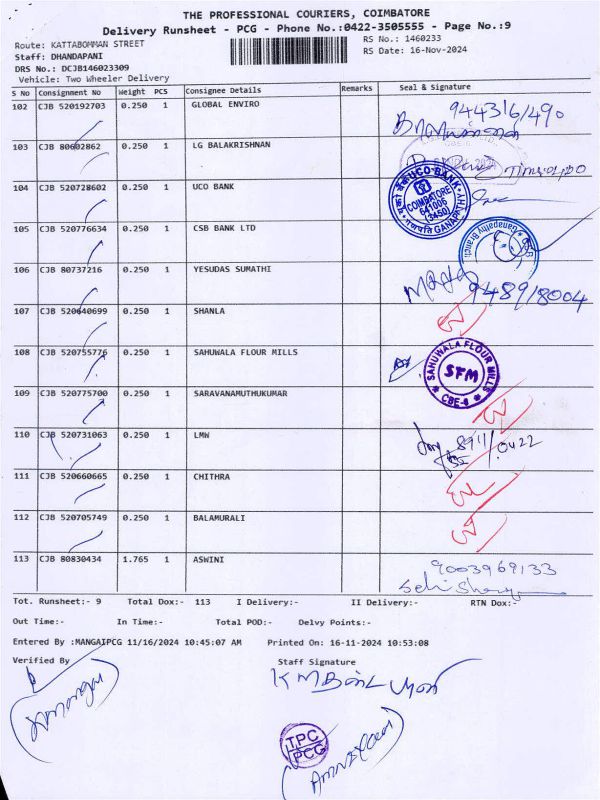 THE PROFESSIONAL COURIERS, COIMBATORE
Delivery Runsheet - PCG - Phone No.:0422-3505555 - Page No.:9
Route: KATTABOMMAN STREET RS No.: 1460233
Staff: DHANDAPANI RS Date: 16-Nov-2024
DRS No.: DCJB146023309
Vehicle: Two Wheeler Delivery
S No Consignment No Weight PCS Consignee Details Remarks Seal & Signature
102 CJB 520192703 0.250 1 GLOBAL ENVIRO 944316490
103 CJB 80602862 0.250 1 LG BALAKRISHNAN
104 CJB 520728602 0.250 1 UCO BANK UCO BANK COIMBATORE 641006 (3450) GANAPATHY
105 CJB 520776634 0.250 1 CSB BANK LTD Ganapathy Branch
106 CJB 80737216 0.250 1 YESUDAS SUMATHI 948918004
107 CJB 520640699 0.250 1 SHANLA
108 CJB 520755776 0.250 1 SAHUWALA FLOUR MILLS SAHUWALA FLOUR MILLS SFM CBE-6
109 CJB 520775700 0.250 1 SARAVANAMUTHUKUMAR
110 CJB 520731063 0.250 1 LMW
111 CJB 520660665 0.250 1 CHITHRA
112 CJB 520705749 0.250 1 BALAMURALI
113 CJB 80830434 1.765 1 ASWINI 9003969133
Tot. Runsheet:- 9 Total Dox:- 113 I Delivery:- II Delivery:- RTN Dox:-
Out Time:- In Time:- Total POD:- Delvy Points:-
Entered By :MANGAIPCG 11/16/2024 10:45:07 AM Printed On: 16-11-2024 10:53:08
Verified By Staff Signature
TPC
PCG